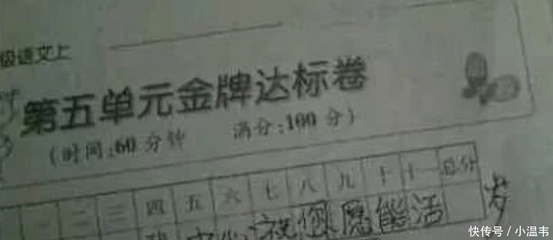 级语文上
第五单元金牌达标卷
(时间:60分钟 满分:100分)
一 二 三 四 五 六 七 八 九 十 十一 总分
祝您愿能活 岁
快传号/小温韦